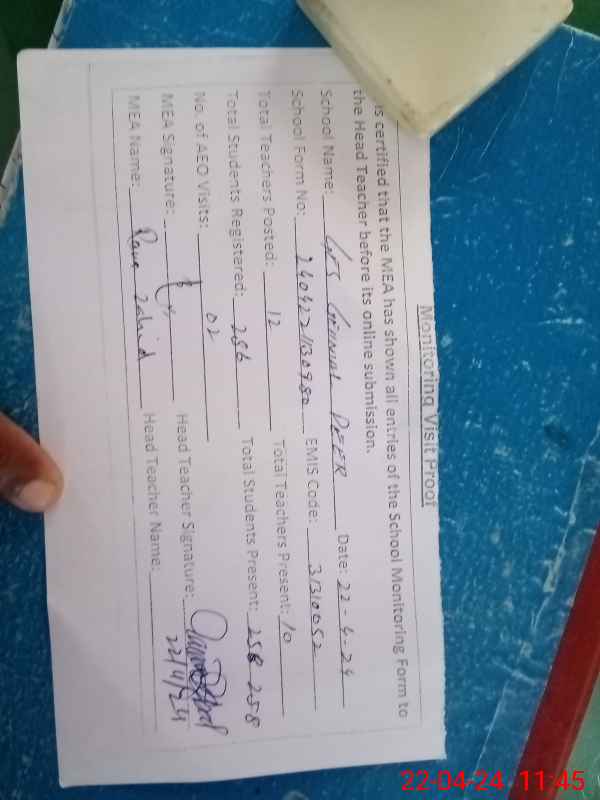 Monitoring Visit Proof
is certified that the MEA has shown all entries of the School Monitoring Form to
the Head Teacher before its online submission.
School Name: GES PEER Date: 22-4-24
School Form No: EMIS Code: 31310052
Total Teachers Posted: 12 Total Teachers Present: 10
Total Students Registered: 286 Total Students Present: 258 258
No. of AEO Visits: 02
MEA Signature: Head Teacher Signature:
22/4/24
MEA Name: Rana Zahid Head Teacher Name:
22-04-24 11:45